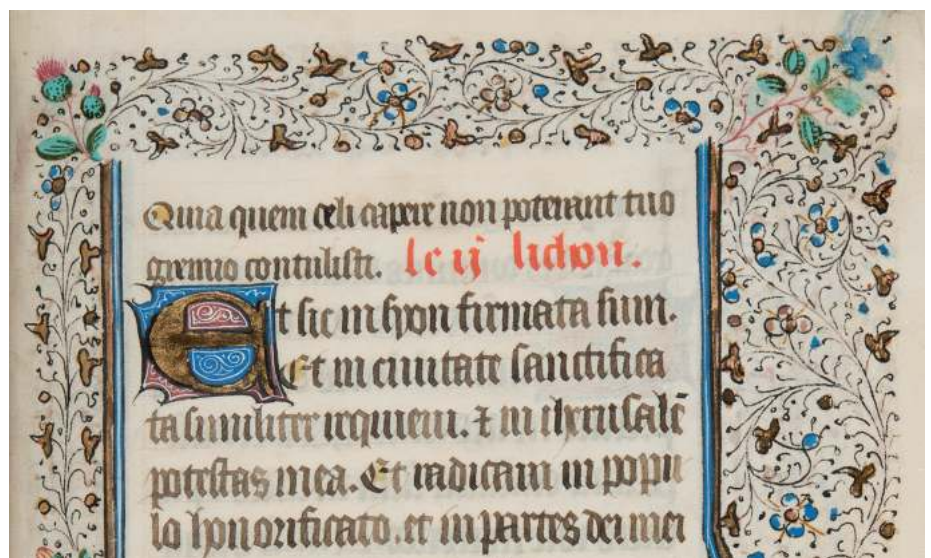 Quia quem celi capere non poterant tuo
gremio contulisti. le ij lichon.
Et sic in syon firmata sum.
Et in ciuitate sanctifica
ta similiter requieui. ⁊ in iherusalē
potestas mea. Et radicaui in popu
lo honorificato. et in partes dei mei